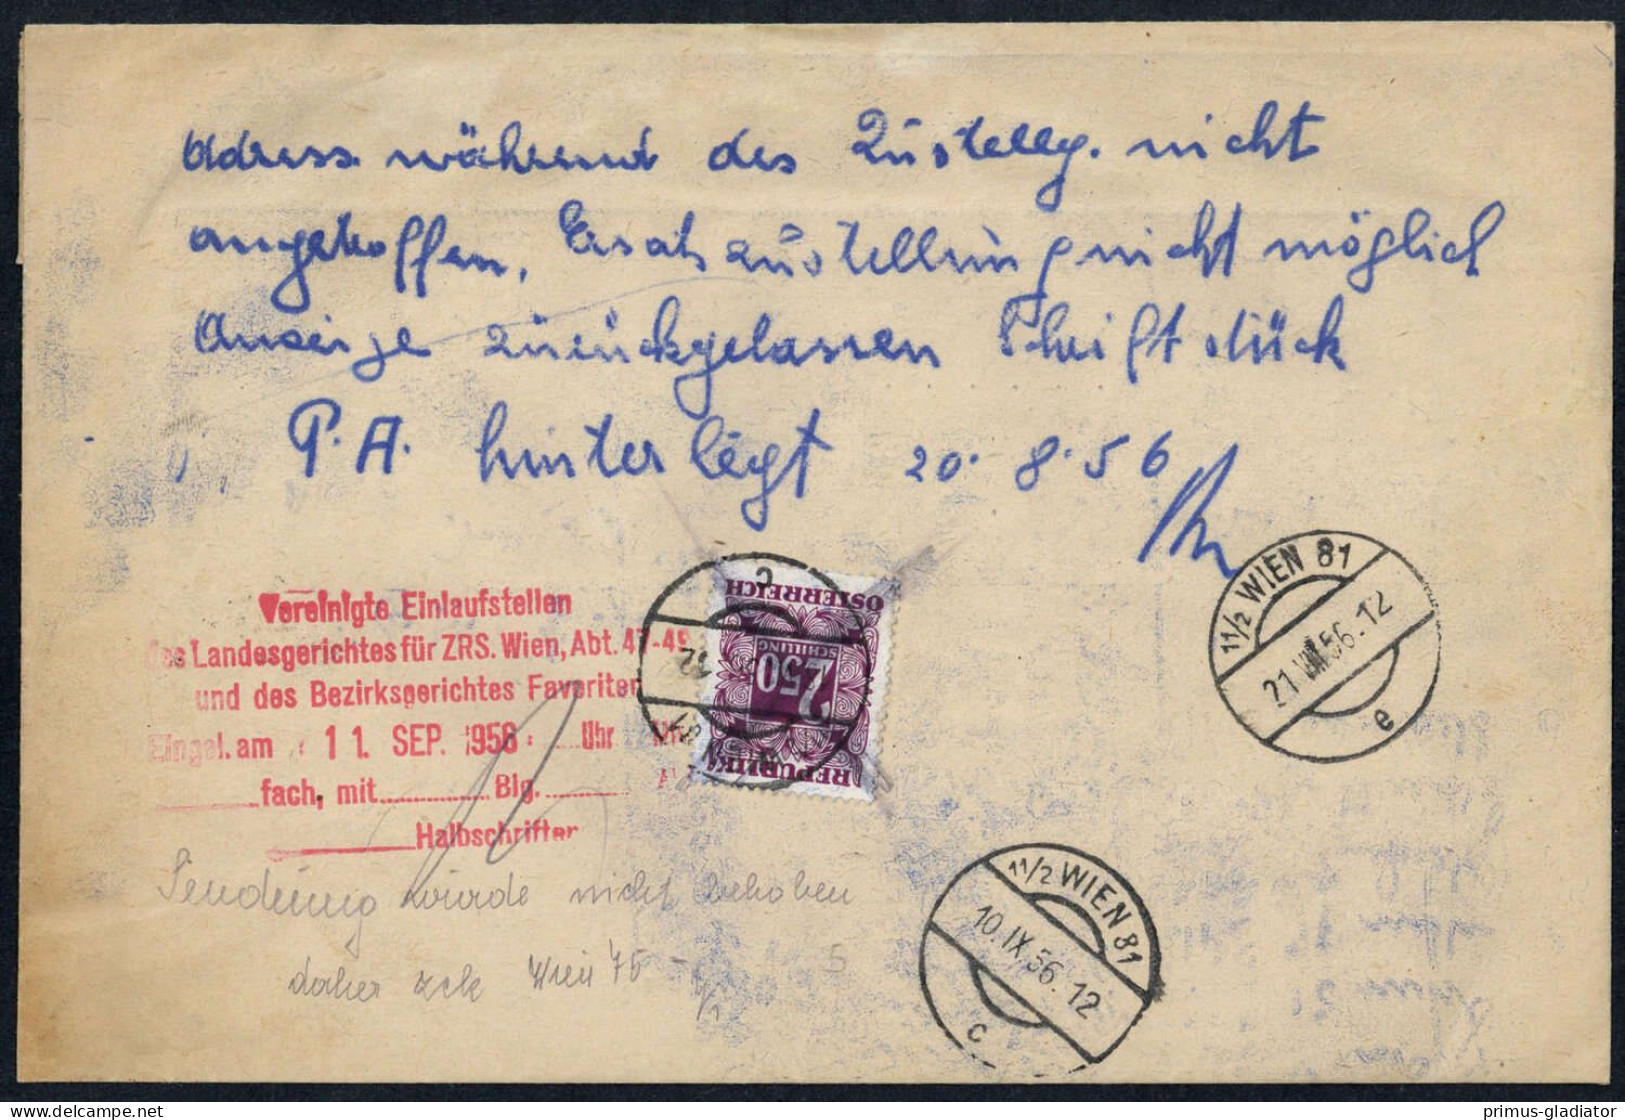 Adress. während des Zustellg. nicht
angetroffen, Ersatzzustellung nicht möglich
Anzeige zurückgelassen Schriftstück
P.A. hinterlegt 20.8.56
11/2 WIEN 81
21.VIII.56.12
e
REPUBLIK
ÖSTERREICH
2.50
SCHILLING
c
Vereinigte Einlaufstellen
des Landesgerichtes für ZRS. Wien, Abt. 47-49
und des Bezirksgerichtes Favoriten
Eingel. am 11. SEP. 1956 Uhr
fach, mit Blg.
Halbschriften
Sendung wurde nicht behoben
daher zck Wien 75
11/2 WIEN 81
10.IX.56.12
c
primus-gladiator